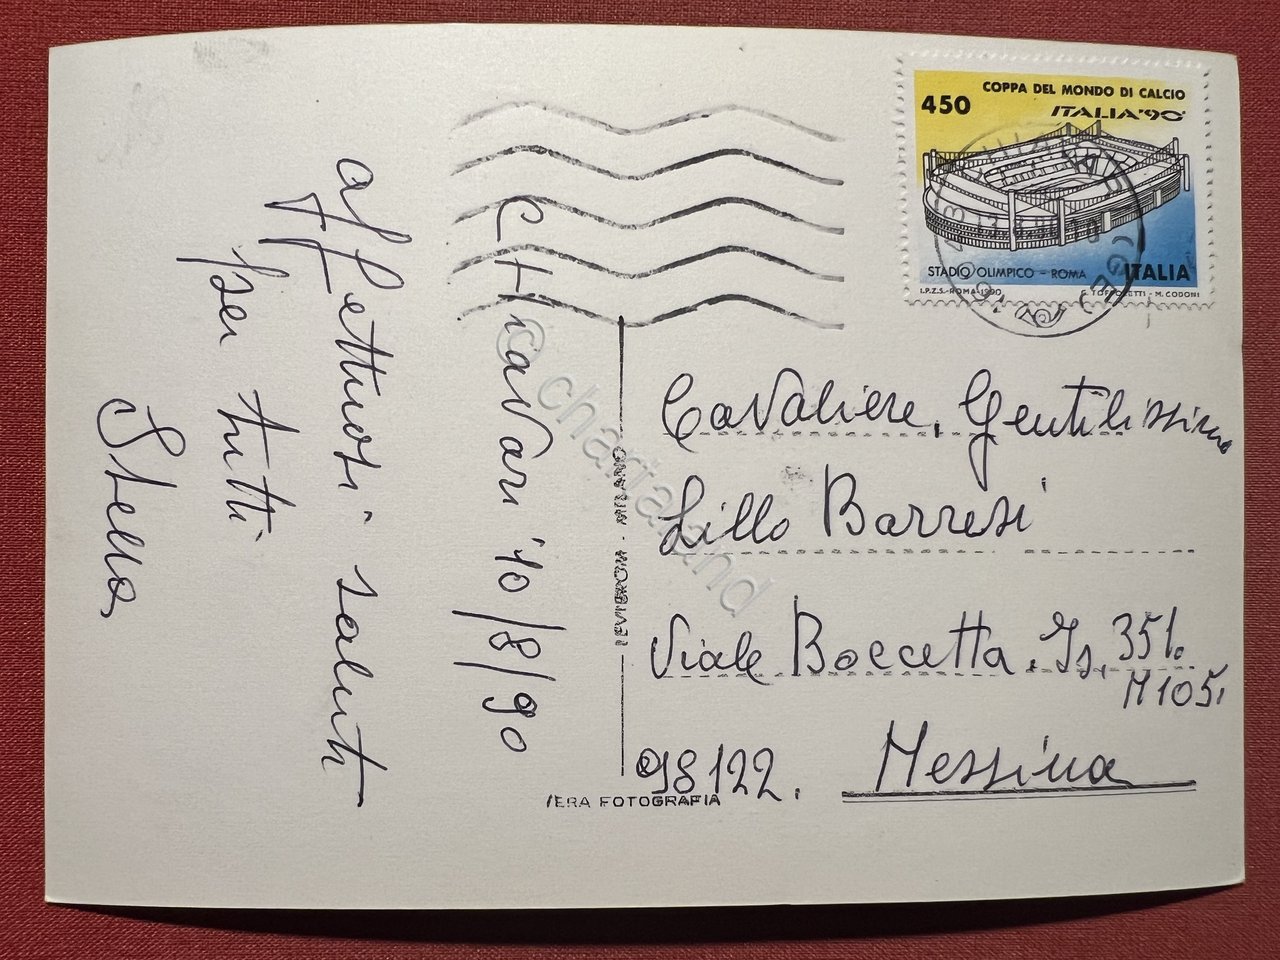 COPPA DEL MONDO DI CALCIO
450
ITALIA'90
STADIO OLIMPICO - ROMA
ITALIA
I.P.Z.S. - ROMA - 1990
M. CODONI
CHiaVari 10/8/90
affettuosi saluti
per tutti
Stella
Cavaliere, Gentilissimo
Lillo Barresi
Viale Boccetta, Is. 351.
N 105.
98122. Messina
MILANO
VERA FOTOGRAFIA
© chartaland